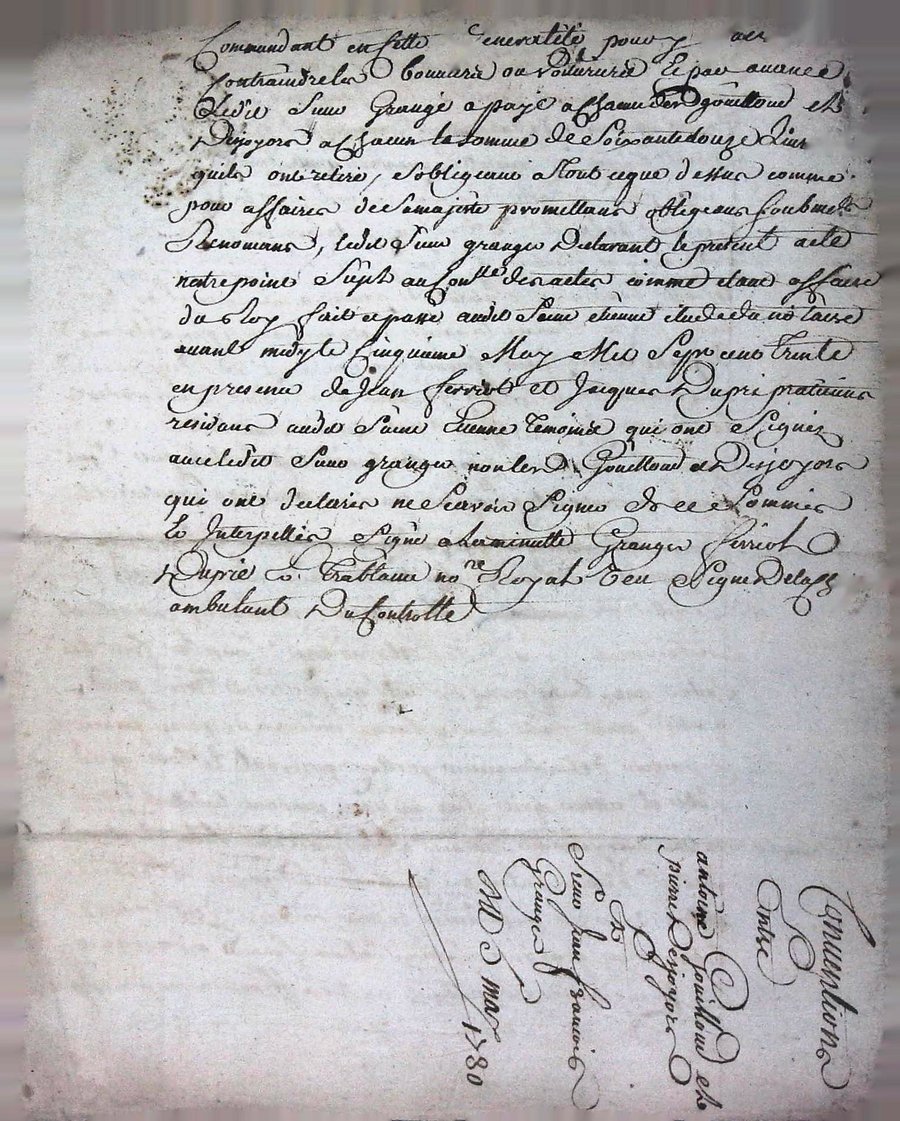 Commandant en cette generalité pour y
Contraindre les
Ledit Sieur Granger a payé a chacun desd gouilloud et
Desjoyers a chacun la somme de soixante douze
quils ont retiré, sobligeant a tout ceque dessus comme
pour affaires de Samajesté promettans obligeans soubmett
Renoncans, ledit Sieur granger Declarant le present acte
nestre point Sujet au Conlle des actes comme etant affaire
du Roy fait et passé audit Saint etienne etude du notaire
avant midy le Cinquieme May Mil Sept cent trente
en presence de Jean ferriot et Jacques Dupré praticiens
residans audit Saint Etienne temoins qui ont Signés
avec ledit Sieur granger non lesd Gouilloud et Desjoyers
qui ont declarés ne Scavoir Signer de ce Sommés
& Interpellés Signé a la minutte Granger ferriot
Dupré & no.re Royal veu Signé
ambulant Du Controlle
Conventions
Entre
antoine Gouilloud et
pierre Desjoyers
Et
Sieur Jean francois
Granger
Du 5 may
1730